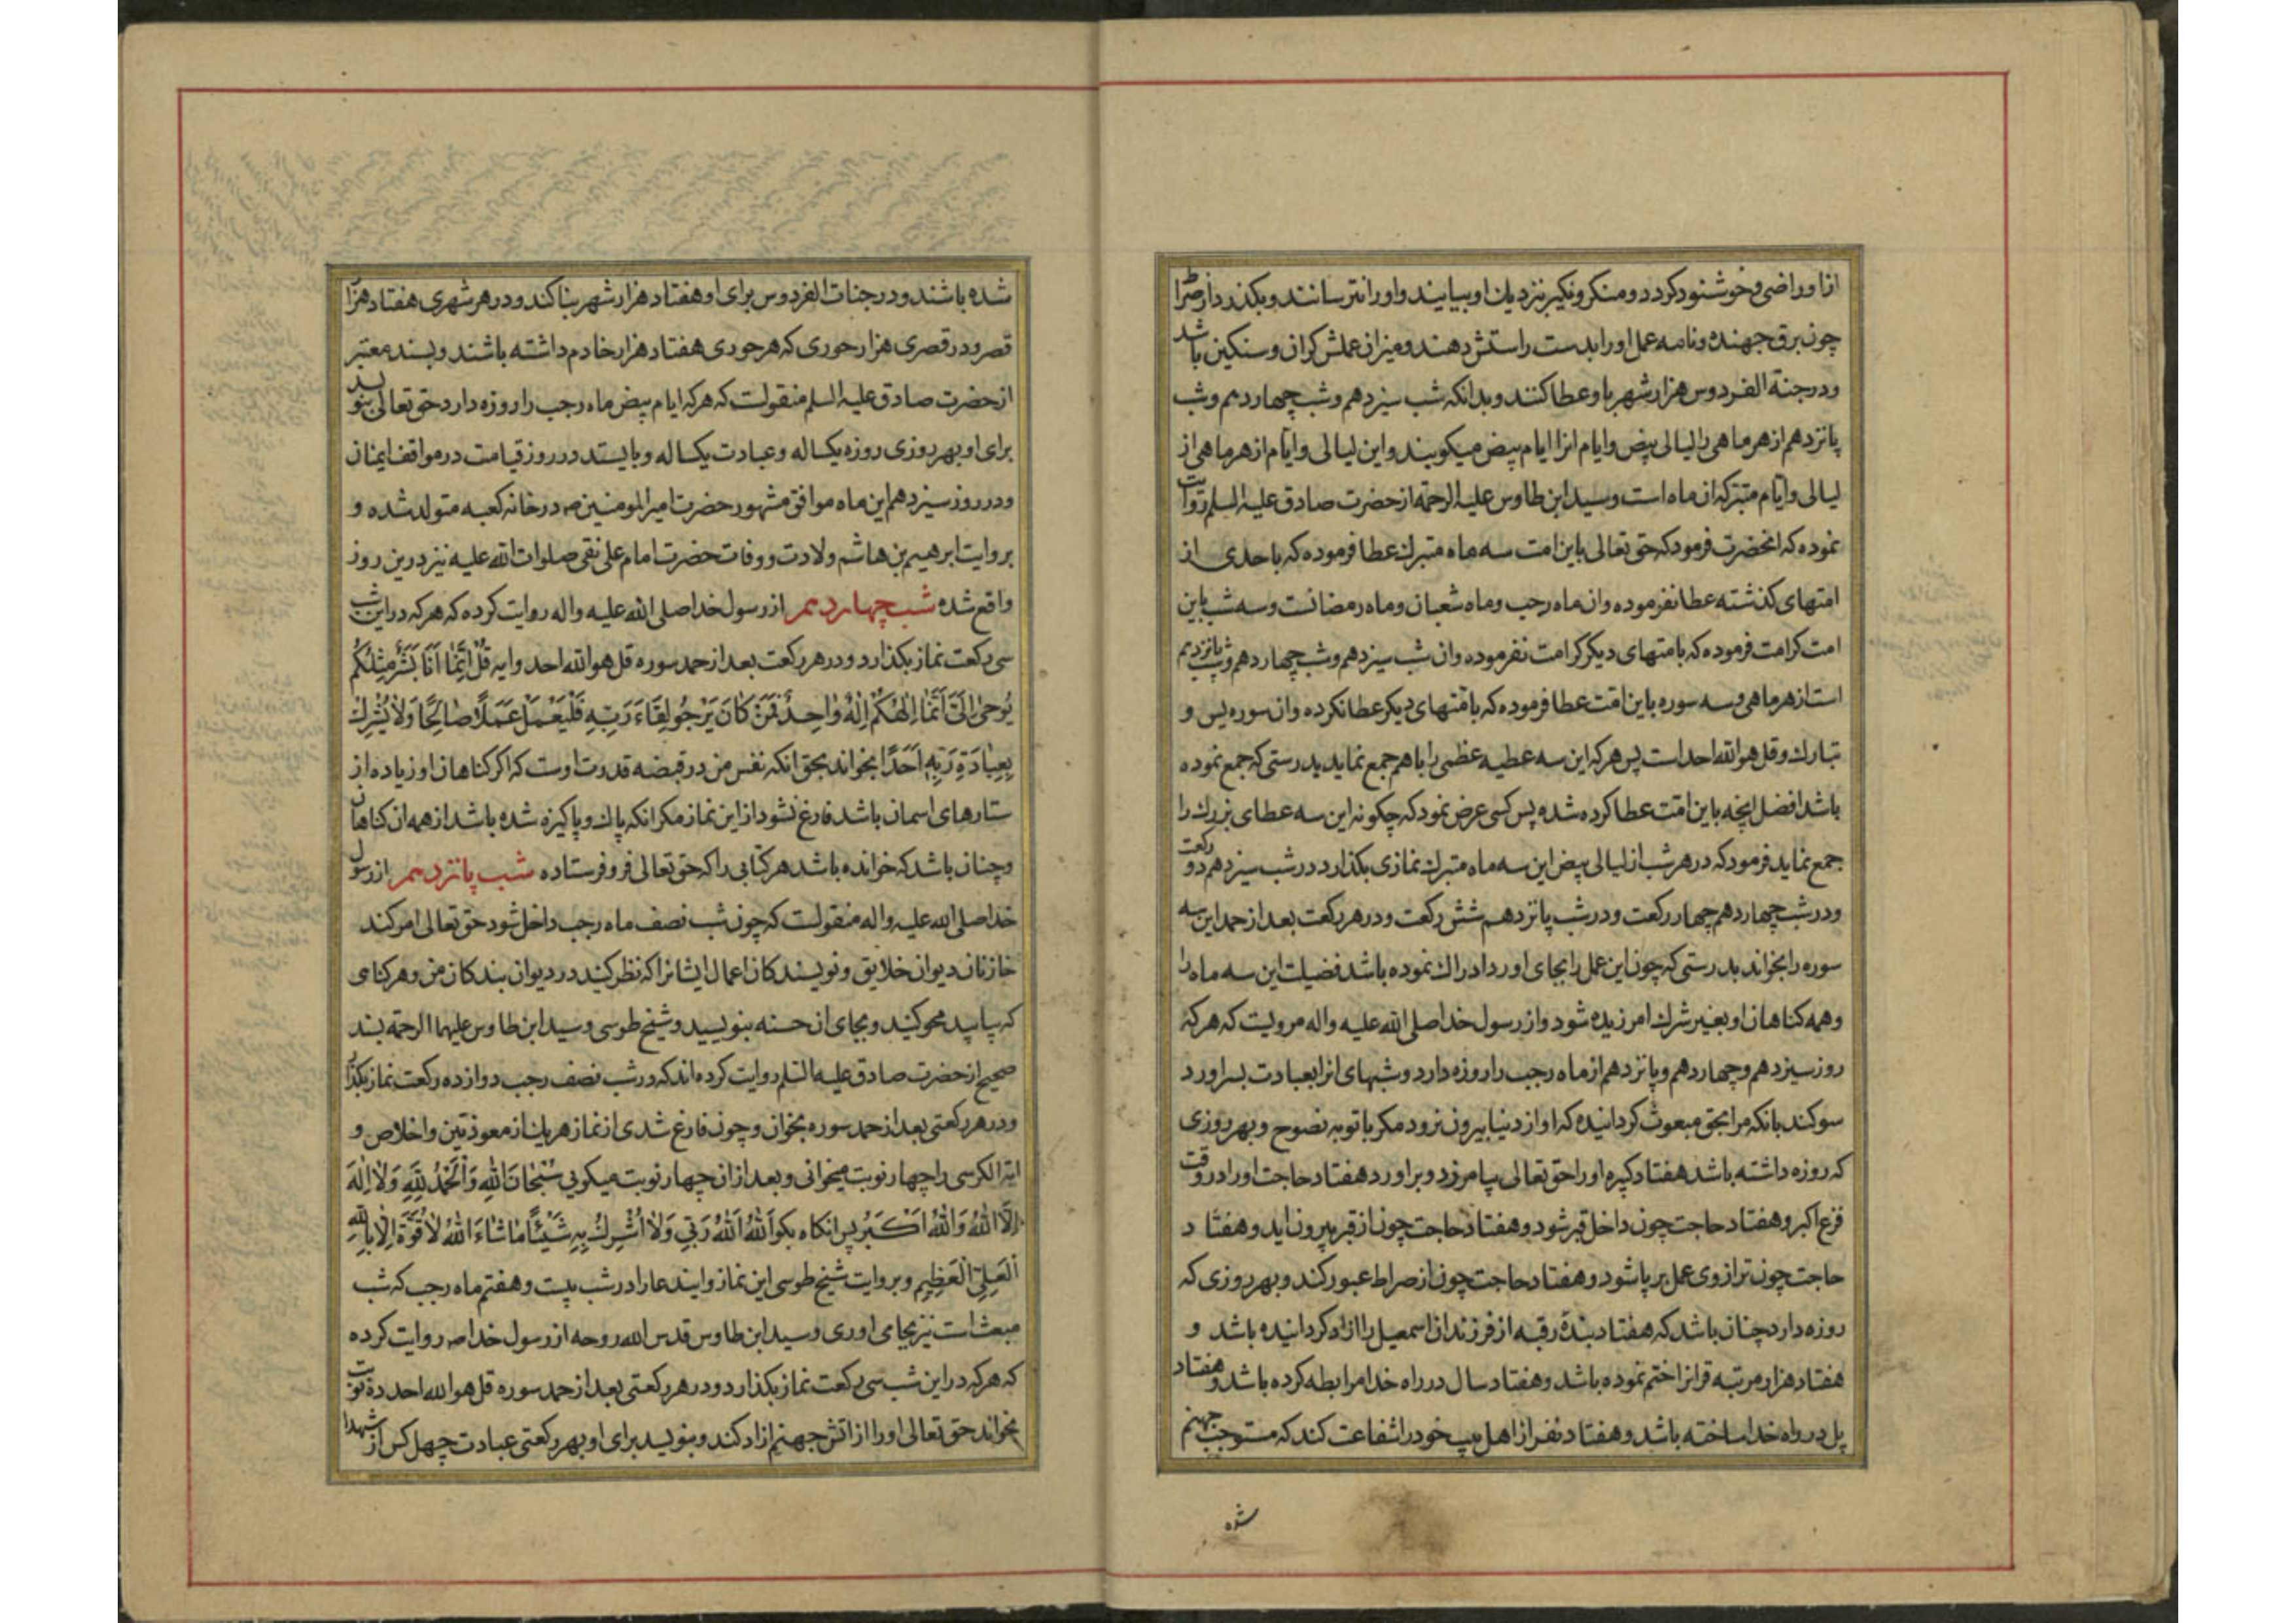 از او راضی و خوشنود کردد و منکر و نکیر نزدیك او بیایند و او را نترسانند و بکذرد از صراط
چون برق جهنده و نامه عمل او را بدست راستش دهند و میزان عملش کران و سنکین باشد
و در جنة الفردوس هزار شهر باو عطا کنند و بدانکه شب سیزدهم و شب چهاردهم و شب
پانزدهم از هر ماهی را لیالی بیض و ایام انرا ایام بیض میکویند و این لیالی و ایام از هر ماهی از
لیالی و ایام متبرکه ان ماه است و سید ابن طاوس علیه الرحمة از حضرت صادق علیه السلم روایت
نموده که انحضرت فرمود که حق تعالی باین امت سه ماه متبرك عطا فرموده که باحدی از
امتهای کذشته عطا نفرموده و ان ماه رجب و ماه شعبان و ماه رمضانست و سه شب باین
امت کرامت فرموده که بامتهای دیکر کرامت نفرموده و ان شب سیزدهم و شب چهاردهم و شب پانزدهم
است از هر ماهی و سه سوره باین امت عطا فرموده که بامتهای دیکر عطا نکرده و ان سوره یس و
تبارك و قل هو الله احد است پس هر که این سه عطیه عظمی را با هم جمع نماید بدرستی که جمع نموده
باشد افضل انچه باین امت عطا کرده شده پس کسی عرض نمود که چکونه این سه عطای بزرك را
جمع نماید فرمود که در هر شب از لیالی بیض این سه ماه متبرك نمازی بکذارد در شب سیزدهم دو رکعت
و در شب چهاردهم چهار رکعت و در شب پانزدهم شش رکعت و در هر رکعت بعد از حمد این سه
سوره را بخواند بدرستی که چون این عمل را بجای اورد ادراك نموده باشد فضیلت این سه ماه را
و همه کناهان او بغیر شرك امرزیده شود و از رسول خدا صلی الله علیه و اله مرویست که هر که
روز سیزدهم و چهاردهم و پانزدهم از ماه رجب را روزه دارد و شبهای انرا بعبادت بسر اورد
سوکند بانکه مرا بحق مبعوث کردانیده که او از دنیا بیرون نرود مکر با توبه نصوح و بهر روزی
که روزه داشته باشد هفتاد کبیره او را حق تعالی بیامرزد و براورد هفتاد حاجت او را در وقت
فزع اکبر و هفتاد حاجت چون داخل قبر شود و هفتاد حاجت چون از قبر بیرون اید و هفتاد
حاجت چون ترازوی عمل بر پا شود و هفتاد حاجت چون از صراط عبور کند و بهر روزی که
روزه دارد چنان باشد که هفتاد بندۀ رقبه از فرزندان اسمعیل را ازاد کردانیده باشد و
هفتاد هزار مرتبه قرانرا ختم نموده باشد و هفتاد سال در راه خدا مرابطه کرده باشد و هفتاد
پل در راه خدا ساخته باشد و هفتاد نفر از اهل بیت خود را شفاعت کند که مستوجب جهنم
شده
شده باشند و در جنات الفردوس برای او هفتاد هزار شهر بنا کند و در هر شهری هفتاد هزار
قصر و در قصری هزار حوری که هر حوری هفتاد هزار خادم داشته باشند و بسند معتبر
از حضرت صادق علیه السلم منقولست که هر که ایام بیض ماه رجب را روزه دارد حق تعالی بنویسد
برای او بهر روزی روزه یکساله و عبادت یکساله و بایستد در روز قیامت در مواقف ایمنان
و در روز سیزدهم این ماه موافق مشهور حضرت امیر المومنین ص در خانه کعبه متولد شده و
بروایت ابرهیم بن هاشم ولادت و وفات حضرت امام علی نقی صلوات الله علیه نیز درین روز
واقع شده شب چهاردهم از رسول خدا صلی الله علیه و اله روایت کرده که هر که در این شب
سی رکعت نماز بکذارد و در هر رکعت بعد از حمد سوره قل هو الله احد و ایه قُلْ اِنَّمٰا اَنَا بَشَرٌ مِثْلُکُمْ
یُوحٰی اِلَیَّ اَنَّمٰا اِلٰهُکُمْ اِلٰهٌ وٰاحِدٌ فَمَنْ کٰانَ یَرْجُو لِقٰاءَ رَبِّهِ فَلْیَعْمَلْ عَمَلًا صٰالِحًا وَلٰا یُشْرِكْ
بِعِبٰادَةِ رَبِّهِ اَحَدًا بخواند بحق انکه نفس من در قبضه قدرت اوست که اکر کناهان او زیاده از
ستارهای اسمان باشد فارغ نشود از این نماز مکر انکه پاك و پاکیزه شده باشد از همه ان کناهان
و چنان باشد که خوانده باشد هر کتابی را که حق تعالی فرو فرستاده شب پانزدهم از رسول
خدا صلی الله علیه و اله منقولست که چون شب نصف ماه رجب داخل شود حق تعالی امر کند
خازنان دیوان خلایق و نویسندکان اعمال ایشانرا که نظر کنید در دیوان بندکان من و هر کناهی
که بیابید محو کنید و بجای ان حسنه بنویسید و شیخ طوسی و سید ابن طاوس علیهما الرحمة بسند
صحیح از حضرت صادق علیه السلم روایت کرده اند که در شب نصف رجب دوازده رکعت نماز بکذار
و در هر رکعتی بعد از حمد سوره بخوان و چون فارغ شدی از نماز هر یك از معوذتین و اخلاص و
ایة الکرسی را چهار نوبت میخوانی و بعد از ان چهار نوبت میکویی سُبْحٰانَ اللّٰهِ وَالْحَمْدُ لِلّٰهِ وَلٰا اِلٰهَ
اِلَّا اللّٰهُ وَاللّٰهُ اَکْبَرُ پس انکاه بکو اَللّٰهُ اَللّٰهُ رَبّی وَلٰا اُشْرِكُ بِهِ شَیْئًا مٰا شٰاءَ اللّٰهُ لٰا قُوَّةَ اِلّٰا بِاللّٰهِ
الْعَلِیِّ الْعَظِیمِ و بروایت شیخ طوسی این نماز و ایندعا را در شب بیست و هفتم ماه رجب که شب
مبعث است نیز بجا می اوری و سید ابن طاوس قدس الله روحه از رسول خدا ص روایت کرده
که هر که در این شب سی رکعت نماز بکذارد و در هر رکعتی بعد از حمد سوره قل هو الله احد ده نوبت
بخواند حق تعالی او را از اتش جهنم ازاد کند و بنویسد برای او بهر رکعتی عبادت چهل کس از شهدا